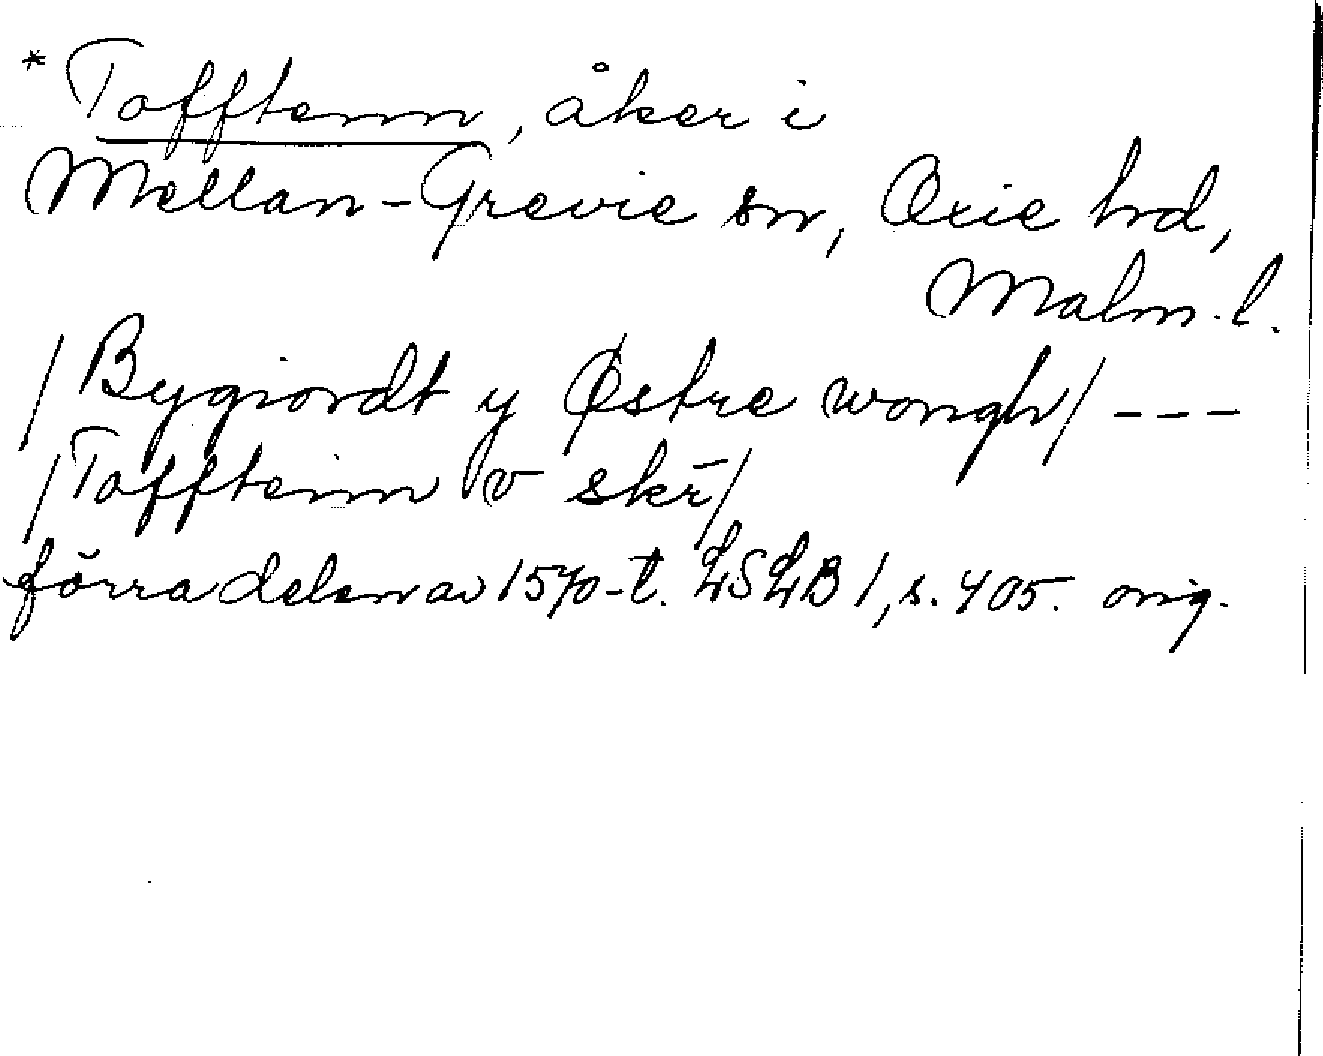 *Tofftenn, åker i
Mellan-Grevie sn, Oxie hd,
Malm. l.
/Bygiordt y Østre wongh/ ---
/Tofftenn v skr/
förra delen av 1570-t. LSLB 1, s. 405. orig.